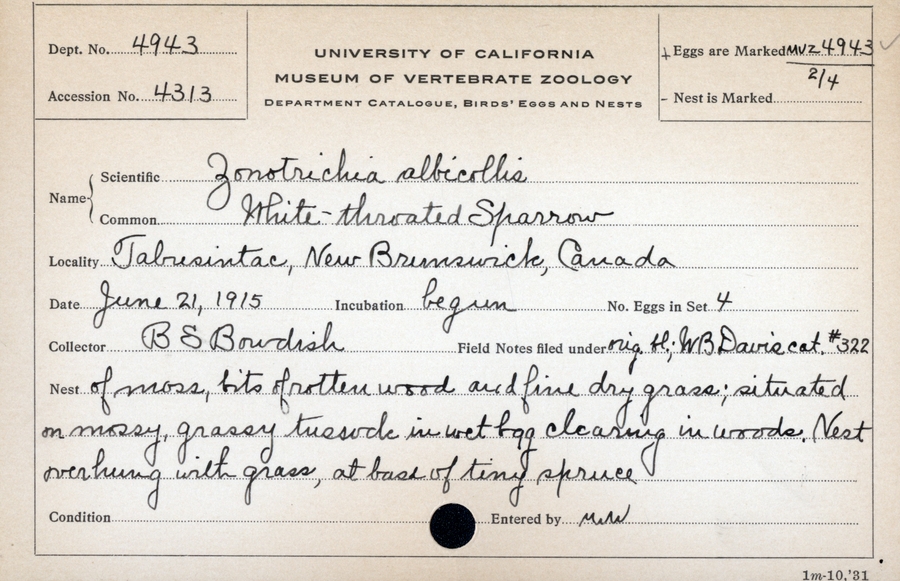 Dept. No. 4943
Accession No. 4313
UNIVERSITY OF CALIFORNIA
MUSEUM OF VERTEBRATE ZOOLOGY
DEPARTMENT CATALOGUE, BIRDS' EGGS AND NESTS
+ Eggs are Marked MVZ 4943 ✓
2/4
- Nest is Marked
Name
Scientific Zonotrichia albicollis
Common White-throated Sparrow
Locality Tabusintac, New Brunswick, Canada
Date June 21, 1915 Incubation begun No. Eggs in Set 4
Collector B S Bowdish Field Notes filed under orig. bl; WB Davis cat. #322
Nest of moss, bits of rotten wood and fine dry grass; situated
on mossy, grassy tussock in wet bog clearing in woods. Nest
overhung with grass, at base of tiny spruce
Condition Entered by
1m-10,'31